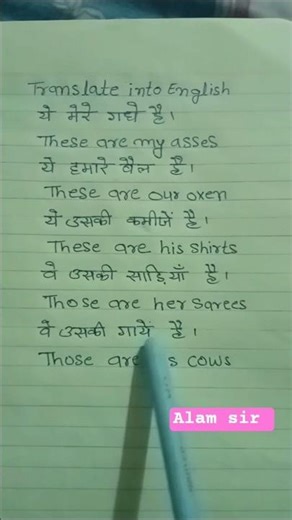 Translate into English
ये मेरे गधे है।
These are my asses
ये हमारे बैल है।
These are our oxen
ये उसकी कमीजें है।
These are his shirts
वे उसकी साड़ियाँ है।
Those are her sarees
वे उसकी गायें है।
Those are cows
Alam sir